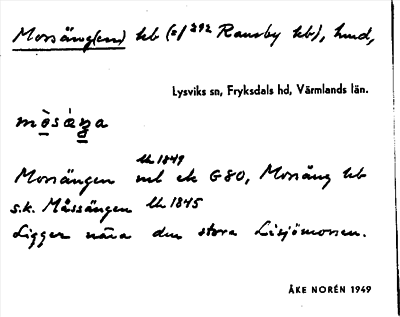 Morsäng(en) hb (=/292 Ransby hb), hmd,
Lysviks sn, Fryksdals hd, Värmlands län.
mòsäŋa
lh 1849
Morsängen ml ek G80, Morsäng hb
s.k. Måssängen lh 1845
Ligger nära den stora Lisjömossen.
ÅKE NORÉN 1949